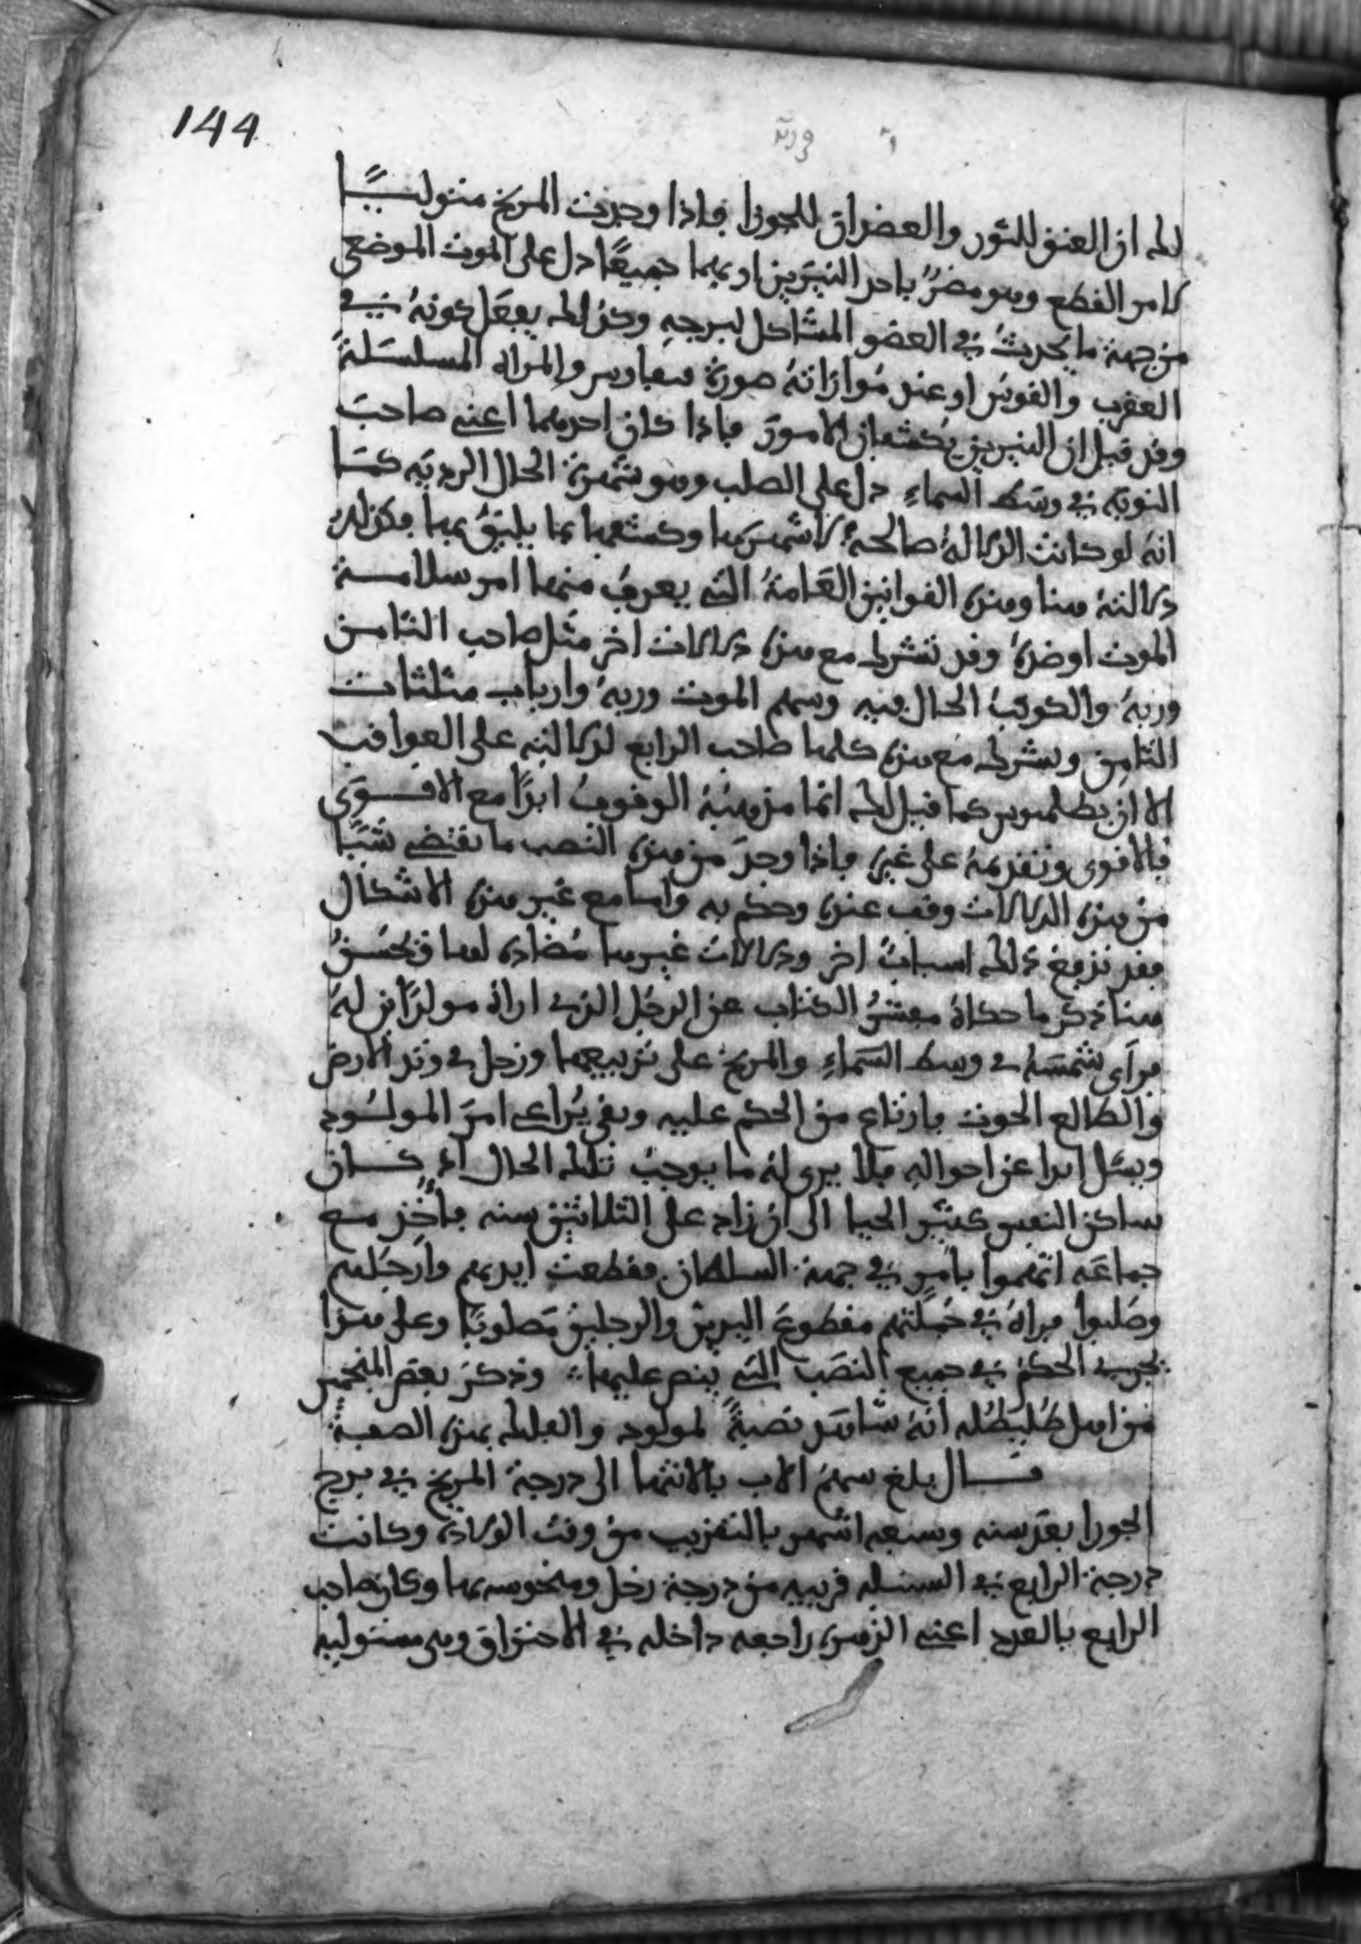 144
لك ان العنق للثور والعضدان للجوزا فاذا وجدت المريخ متوليًا
لامر القطع وهو مضرٌ باحد النيرين او بهما جميعًا دل على الموت الموضعي
من جهة ما يحدث في العضو المشاكل لبرجه وكذلك يفعل كونهُ في
العقرب والقوس او عند موازاته صورة والمراه المسلسلة
وقد قيل ان النيرين يكشفان الامور فاذا كان احدهما اعني صاحب
النوبة في وسط السماء دل على الصلب وهو شهرة الحال الردية كما
انه لو كانت الدلالة صالحة لاشهرها وكشفها بما يليق بها فكذلك
دلالته هنا وهذه القوانين العامة التي يعرف منها امر سلامة
الموت او ضده وقد تشرك مع هذه دلالات اخر مثل صاحب الثامن
وربهُ والكوكب الحال فيه وسهم الموت وربهُ وارباب مثلثات
الثامن ويشرك مع هذه كلها صاحب الرابع لدلالته على العواقب
الا ان بطلميوس كما قيل لك انما مذهبهُ الوقوف ابدًا مع الاقوى
فالاقوى وتقديمهُ على غيره فاذا وجد من هذه النصب ما يقتضي شيًا
من هذه الدلالات وقف عنده وحكم به واما مع غير هذه الاشكال
فقد تدفع ذلك اسبابٌ اخر ودلالات غيرها مضاده لها ويحسن
هنا ذكر ما حكاهُ مفسّرُ الكتاب عن الرجل الذي اراهُ مولدًا ابن لهُ
فراى شمسه في وسط السماء والمريخ على تربيعها وزحل في وتد الارض
والطالع الحوت فارتاع من الحكم عليه وبقي يُراعي امر المولود
ويسل ابدا عن احواله فلا يرى لهُ ما يوجب تلك الحال اذ كان
ساكن النفس كثير الحيا الى ان زاد على الثلاثين سنه فاُخذ مع
جماعة اتهموا بامرٍ في جهة السلطان فقطعت ايديهم وارجلهم
وصُلبوا فراهُ في جملتهم مقطوع اليدين والرجلين مصلوبًا وعلى هذا
يجري الحكم في جميع النصب التي ينص عليها وذكر بعض المنجمين
من اهل طليطله انه شاهد نصبةً لمولود والفلك بهذه الصفة
قال بلغ سهم الاب بالانتها الى درجة المريخ في برج
الجوزا بعد سنه وسبعه اشهر بالتقريب من وقت الولادة وكانت
درجة الرابع في السنبله قريبه من درجة زحل ومنحوسه بها وكان صاحب
الرابع بالعرج اعني الزهره راجعه داخله في الاحتراق وهي مستوليه